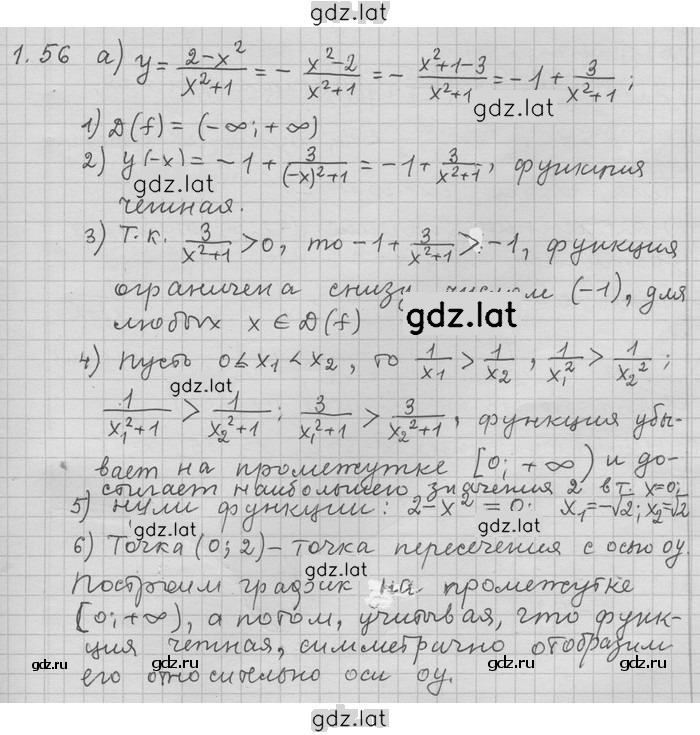 gdz.lat
1.56 а) y = (2-x²)/(x²+1) = - (x²-2)/(x²+1) = - (x²+1-3)/(x²+1) = -1 + 3/(x²+1) ;
gdz.lat
1) D(f) = (-∞; +∞)
2) y(-x) = -1 + 3/((-x)²+1) = -1 + 3/(x²+1), функция
gdz.lat
gdz.lat
четная.
3) Т.к. 3/(x²+1) > 0, то -1 + 3/(x²+1) > -1, функция
ограничена снизу числом (-1), для
gdz.lat
любых x ∈ D(f)
4) Пусть 0 ≤ x₁ < x₂, то 1/x₁ > 1/x₂, 1/x₁² > 1/x₂² ;
gdz.lat
1/(x₁²+1) > 1/(x₂²+1) ; 3/(x₁²+1) > 3/(x₂²+1), функция убы-
gdz.lat
вает на промежутке [0; +∞) и до-
стигает наибольшего значения 2 в т. x=0;
gdz.lat
5) Нули функции: 2-x² = 0. x₁=-√2; x₂=√2
6) Точка (0; 2) - точка пересечения с осью oy.
gdz.lat
Построим график на промежутке
[0; +∞), а потом, учитывая, что функ-
ция четная, симметрично отобразим
его относительно оси oy.
gdz.ru
gdz.ru
gdz.ru
gdz.ru
gdz.ru
gdz.lat